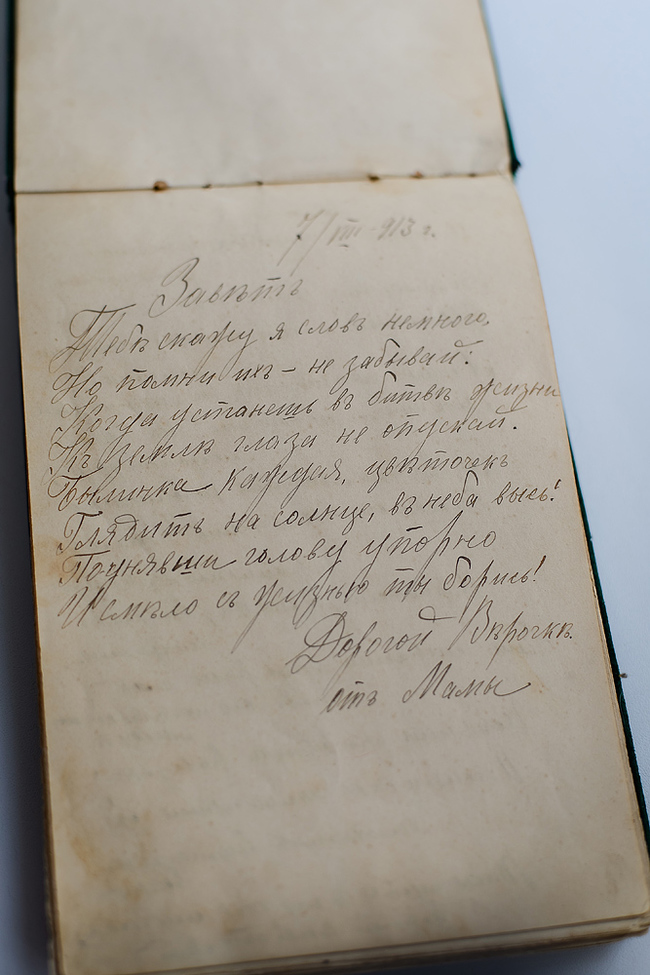 7/III-913 г.
Завѣтъ
Тебѣ скажу я словъ немного,
Но помни ихъ - не забывай:
Когда устанешь въ битвѣ жизни
Къ землѣ глаза не опускай.
Былинка каждая, цвѣточекъ
Глядитъ на солнце, въ неба высь!
Поднявши голову упорно
И смѣло съ жизнью ты борись!
Дорогой Вѣрочкѣ
отъ Мамы